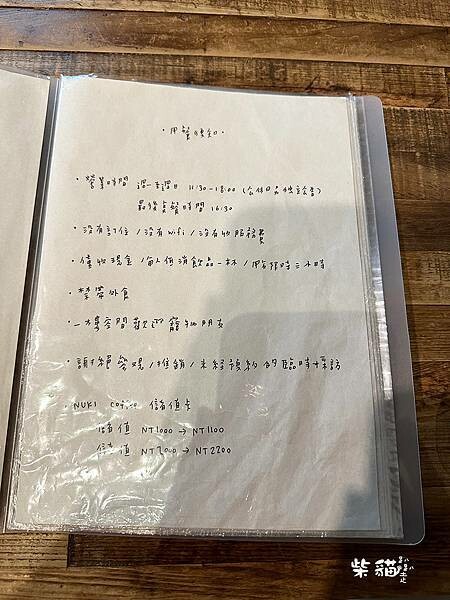 ·用餐須知·
·營業時間 週一至週日 11:30-18:00 (公休日另行公告)
最後點餐時間 16:30
·沒有訂位/沒有wifi/沒有收服務費
·僅收現金/每人低消飲品一杯/用餐限時二小時
·禁帶外食
·一樓空間歡迎寵物朋友
·謝絕參觀/推銷/未經預約的臨時採訪
·NUKI coffee 儲值卡
儲值 NT1000→NT1100
儲值 NT2000→NT2200
柴貓趴趴走